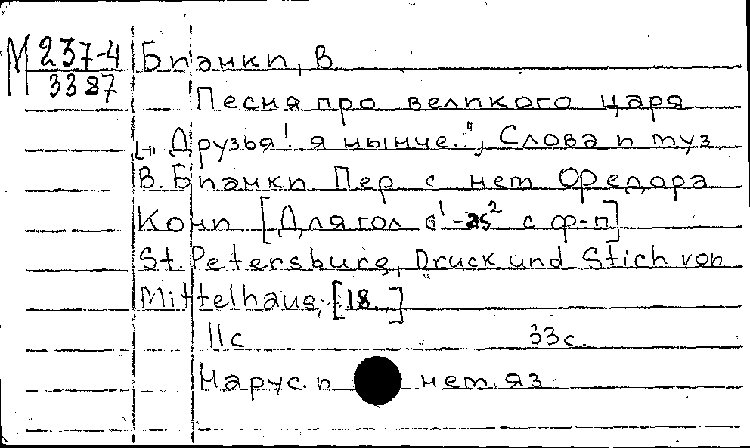 М 237-4
3387
Бланкп, В.
Песня про великого царя
[„Друзья! я нынче.."], Слова и муз
В. Бланкп. Пер с нем Федора
Кони [Для гол d¹-as² с ф-п]
St. Petersburg, Druck und Stich von
Mittelhaus, [18..]
11с 33с.
На рус. и нем. яз